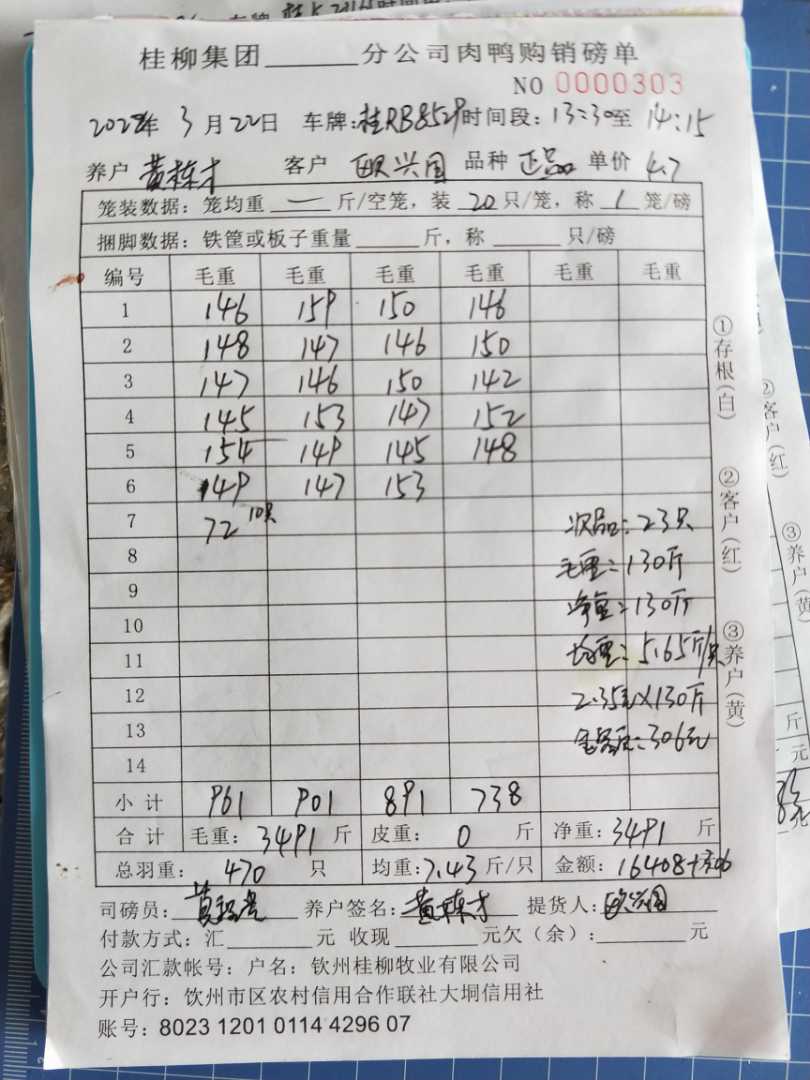 桂柳集团______分公司肉鸭购销磅单
NO 0000303
2022年 3月22日 车牌:桂RB8529 时间段:13:30至 14:15
养户 黄栋才 客户 欧兴国 品种 正品 单价 4.7
笼装数据:笼均重 一 斤/空笼,装 20 只/笼,称 1 笼/磅
捆脚数据:铁筐或板子重量______斤,称______只/磅
编号 毛重 毛重 毛重 毛重 毛重 毛重
1 146 159 150 146
2 148 147 146 150
3 147 146 150 142
4 145 153 147 152
5 154 149 145 148
6 149 147 153
7 72 10只
8
9
10
11
12
13
14
次品:23只
毛重:130斤
净重:130斤
均重:5.65斤/只
2.35元×130斤
金额:306元
小计 961 901 891 738
合计 毛重:3491斤 皮重:0 斤 净重:3491斤
总羽重:470 只 均重:7.43斤/只 金额:16408+306
司磅员: 养户签名:黄栋才 提货人:欧兴国
付款方式:汇______元 收现______元欠(余):______元
公司汇款帐号:户名:钦州桂柳牧业有限公司
开户行:饮州市区农村信用合作联社大垌信用社
账号:8023 1201 0114 4296 07
①存根(白)
②客户(红)
③养户(黄)
②客户(红)
③养户(黄)
斤
元